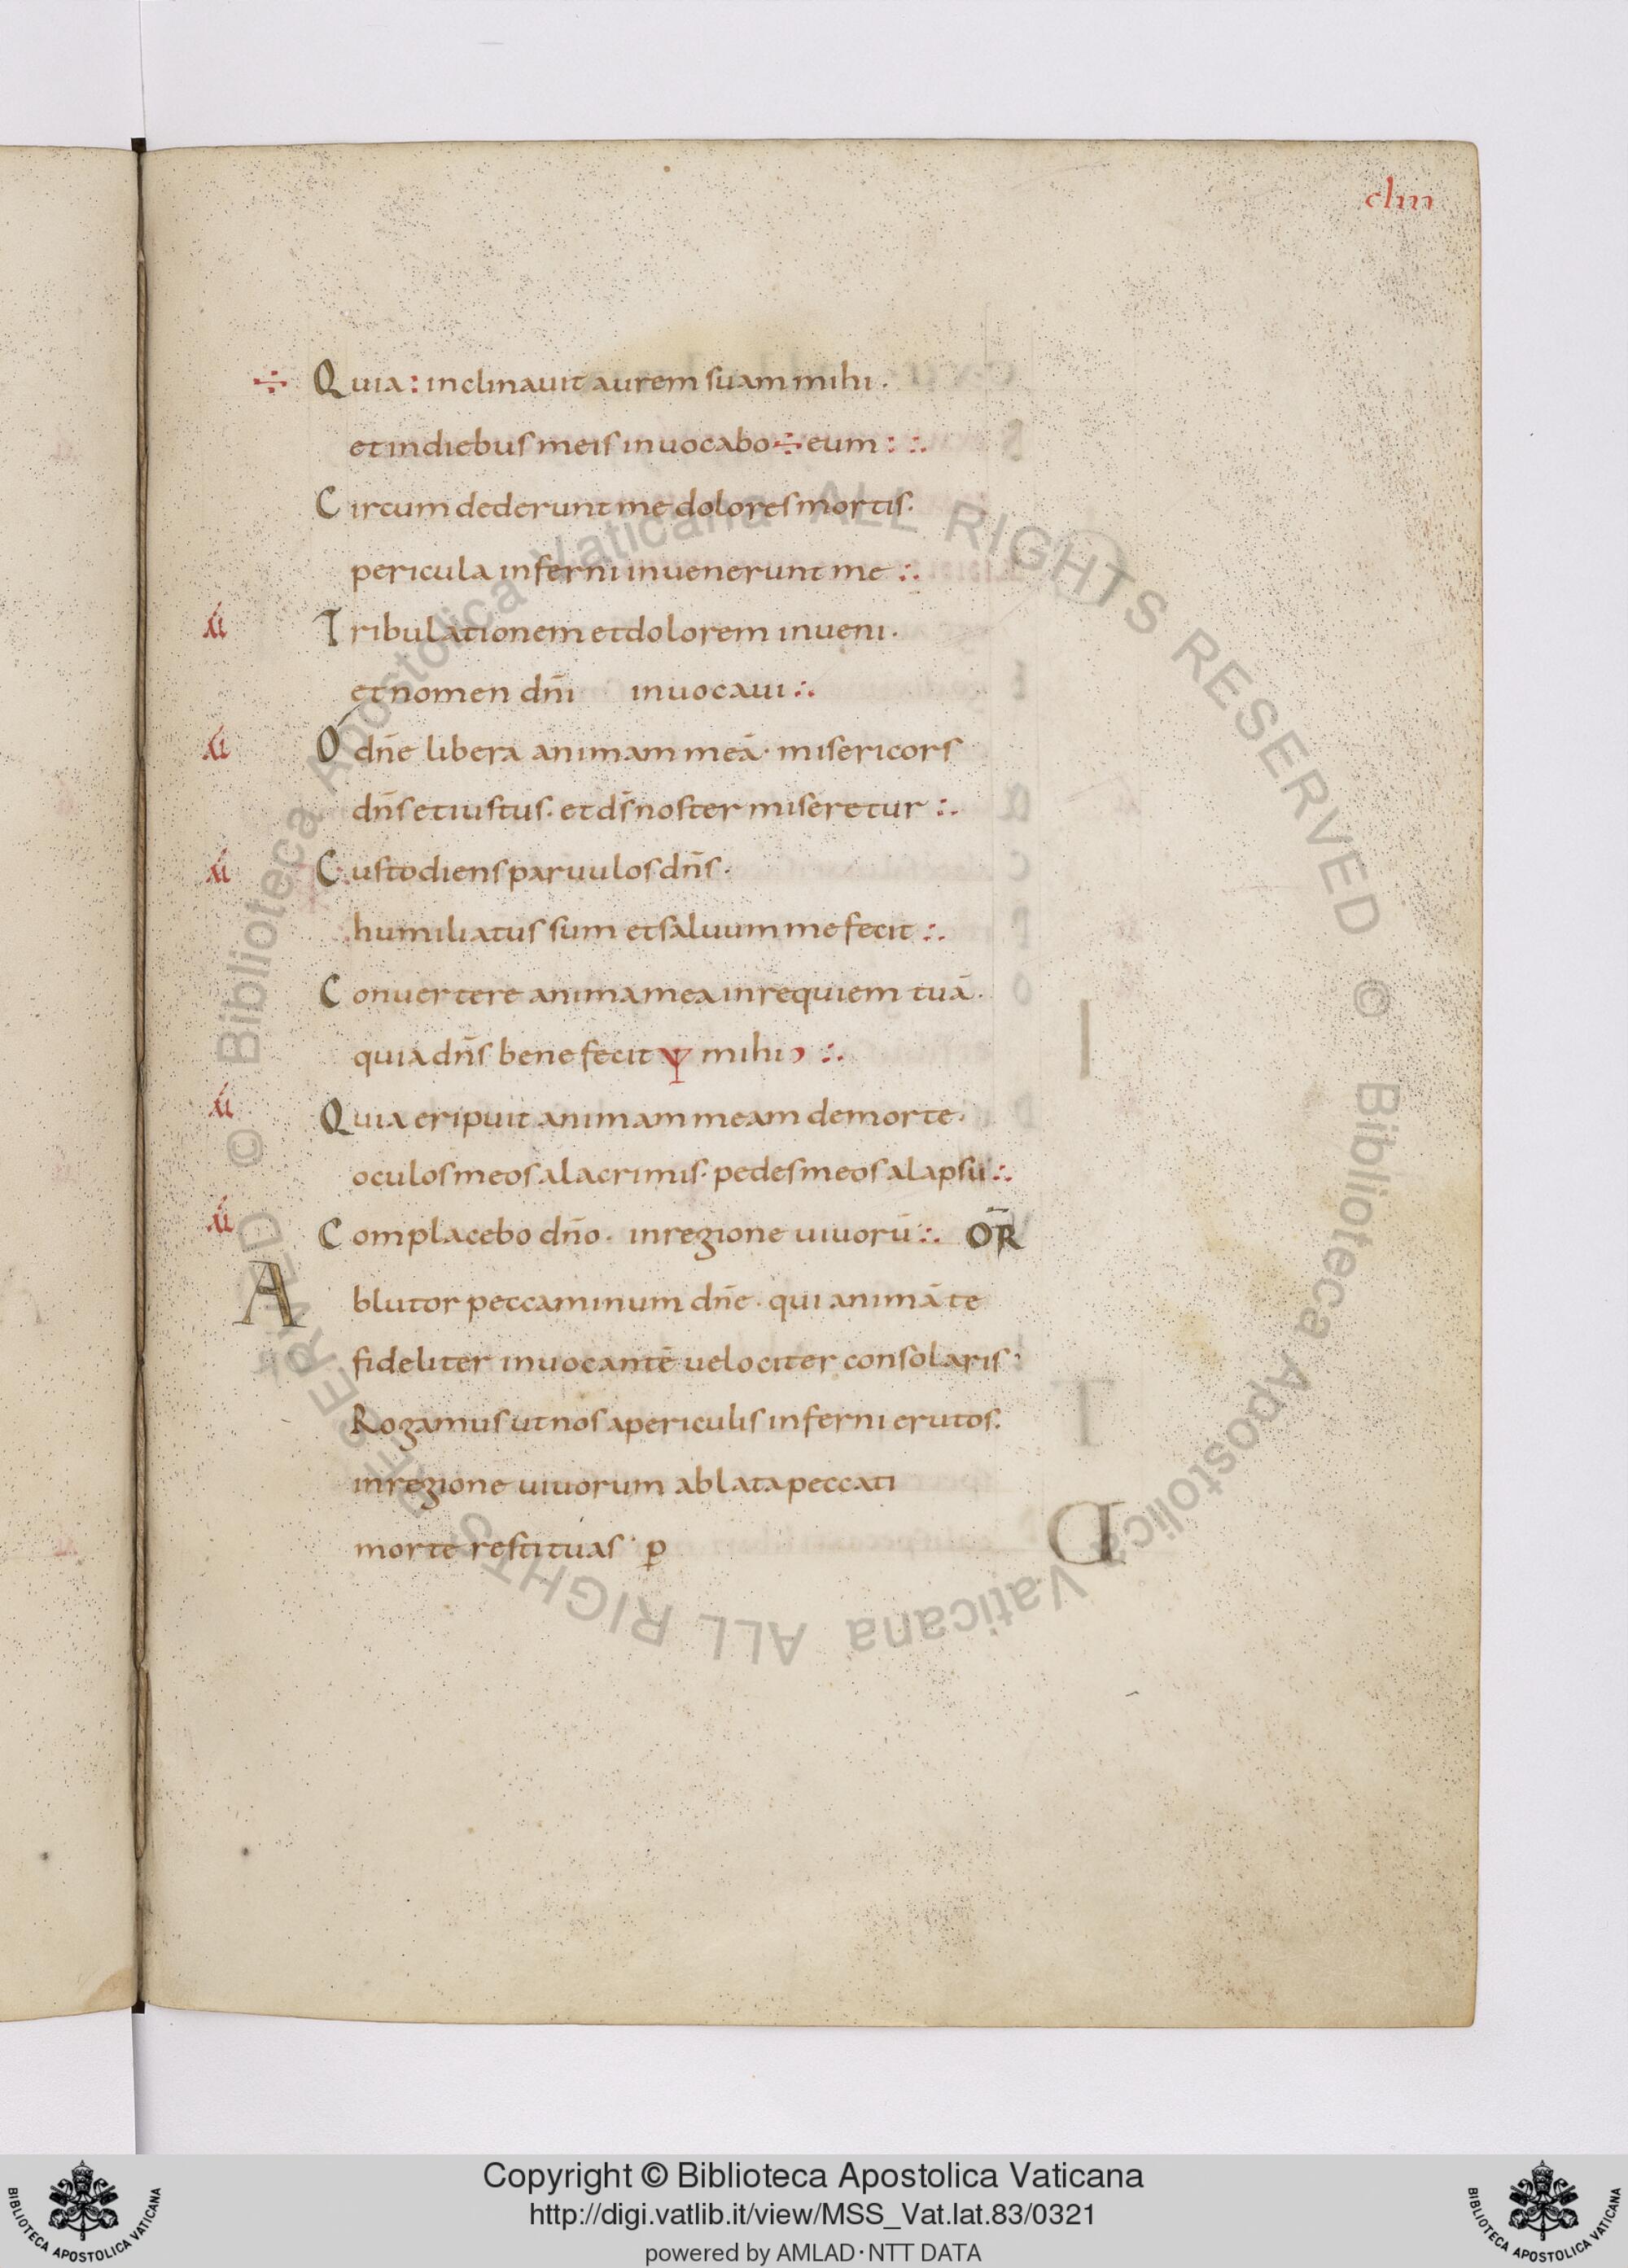 clııı
÷ Quia: inclinauit aurem suam mihi.
et in diebus meis inuocabo ÷ eum: :.
Circumdederunt me dolores mortis.
pericula inferni inuenerunt me :.
Tribulationem et dolorem inueni.
et nomen dn̄i inuocaui :.
O dn̄e libera animam meā. misericors
dn̄s et iustus. et ds̄ noster miseretur :.
Custodiens paruulos dn̄s.
humiliatus sum et saluum me fecit :.
Conuertere anima mea in requiem tuā.
quia dn̄s benefecit Ψ mihi :.
Quia eripuit animam meam de morte.
oculos meos a lacrimis. pedes meos a lapsu :.
Complacebo dn̄o. in regione uiuorū :. OR̄
Ablutor peccaminum dn̄e. qui animā te
fideliter inuocantē uelociter consolaris:
Rogamus ut nos a periculis inferni erutos.
in regione uiuorum ablata peccati
morte restituas. p
© Biblioteca Apostolica Vaticana ALL RIGHTS RESERVED © Biblioteca Apostolica Vaticana ALL RIGHTS RESERVED
Copyright © Biblioteca Apostolica Vaticana
http://digi.vatlib.it/view/MSS_Vat.lat.83/0321
powered by AMLAD·NTT DATA
BIBLIOTECA APOSTOLICA VATICANA
BIBLIOTECA APOSTOLICA VATICANA